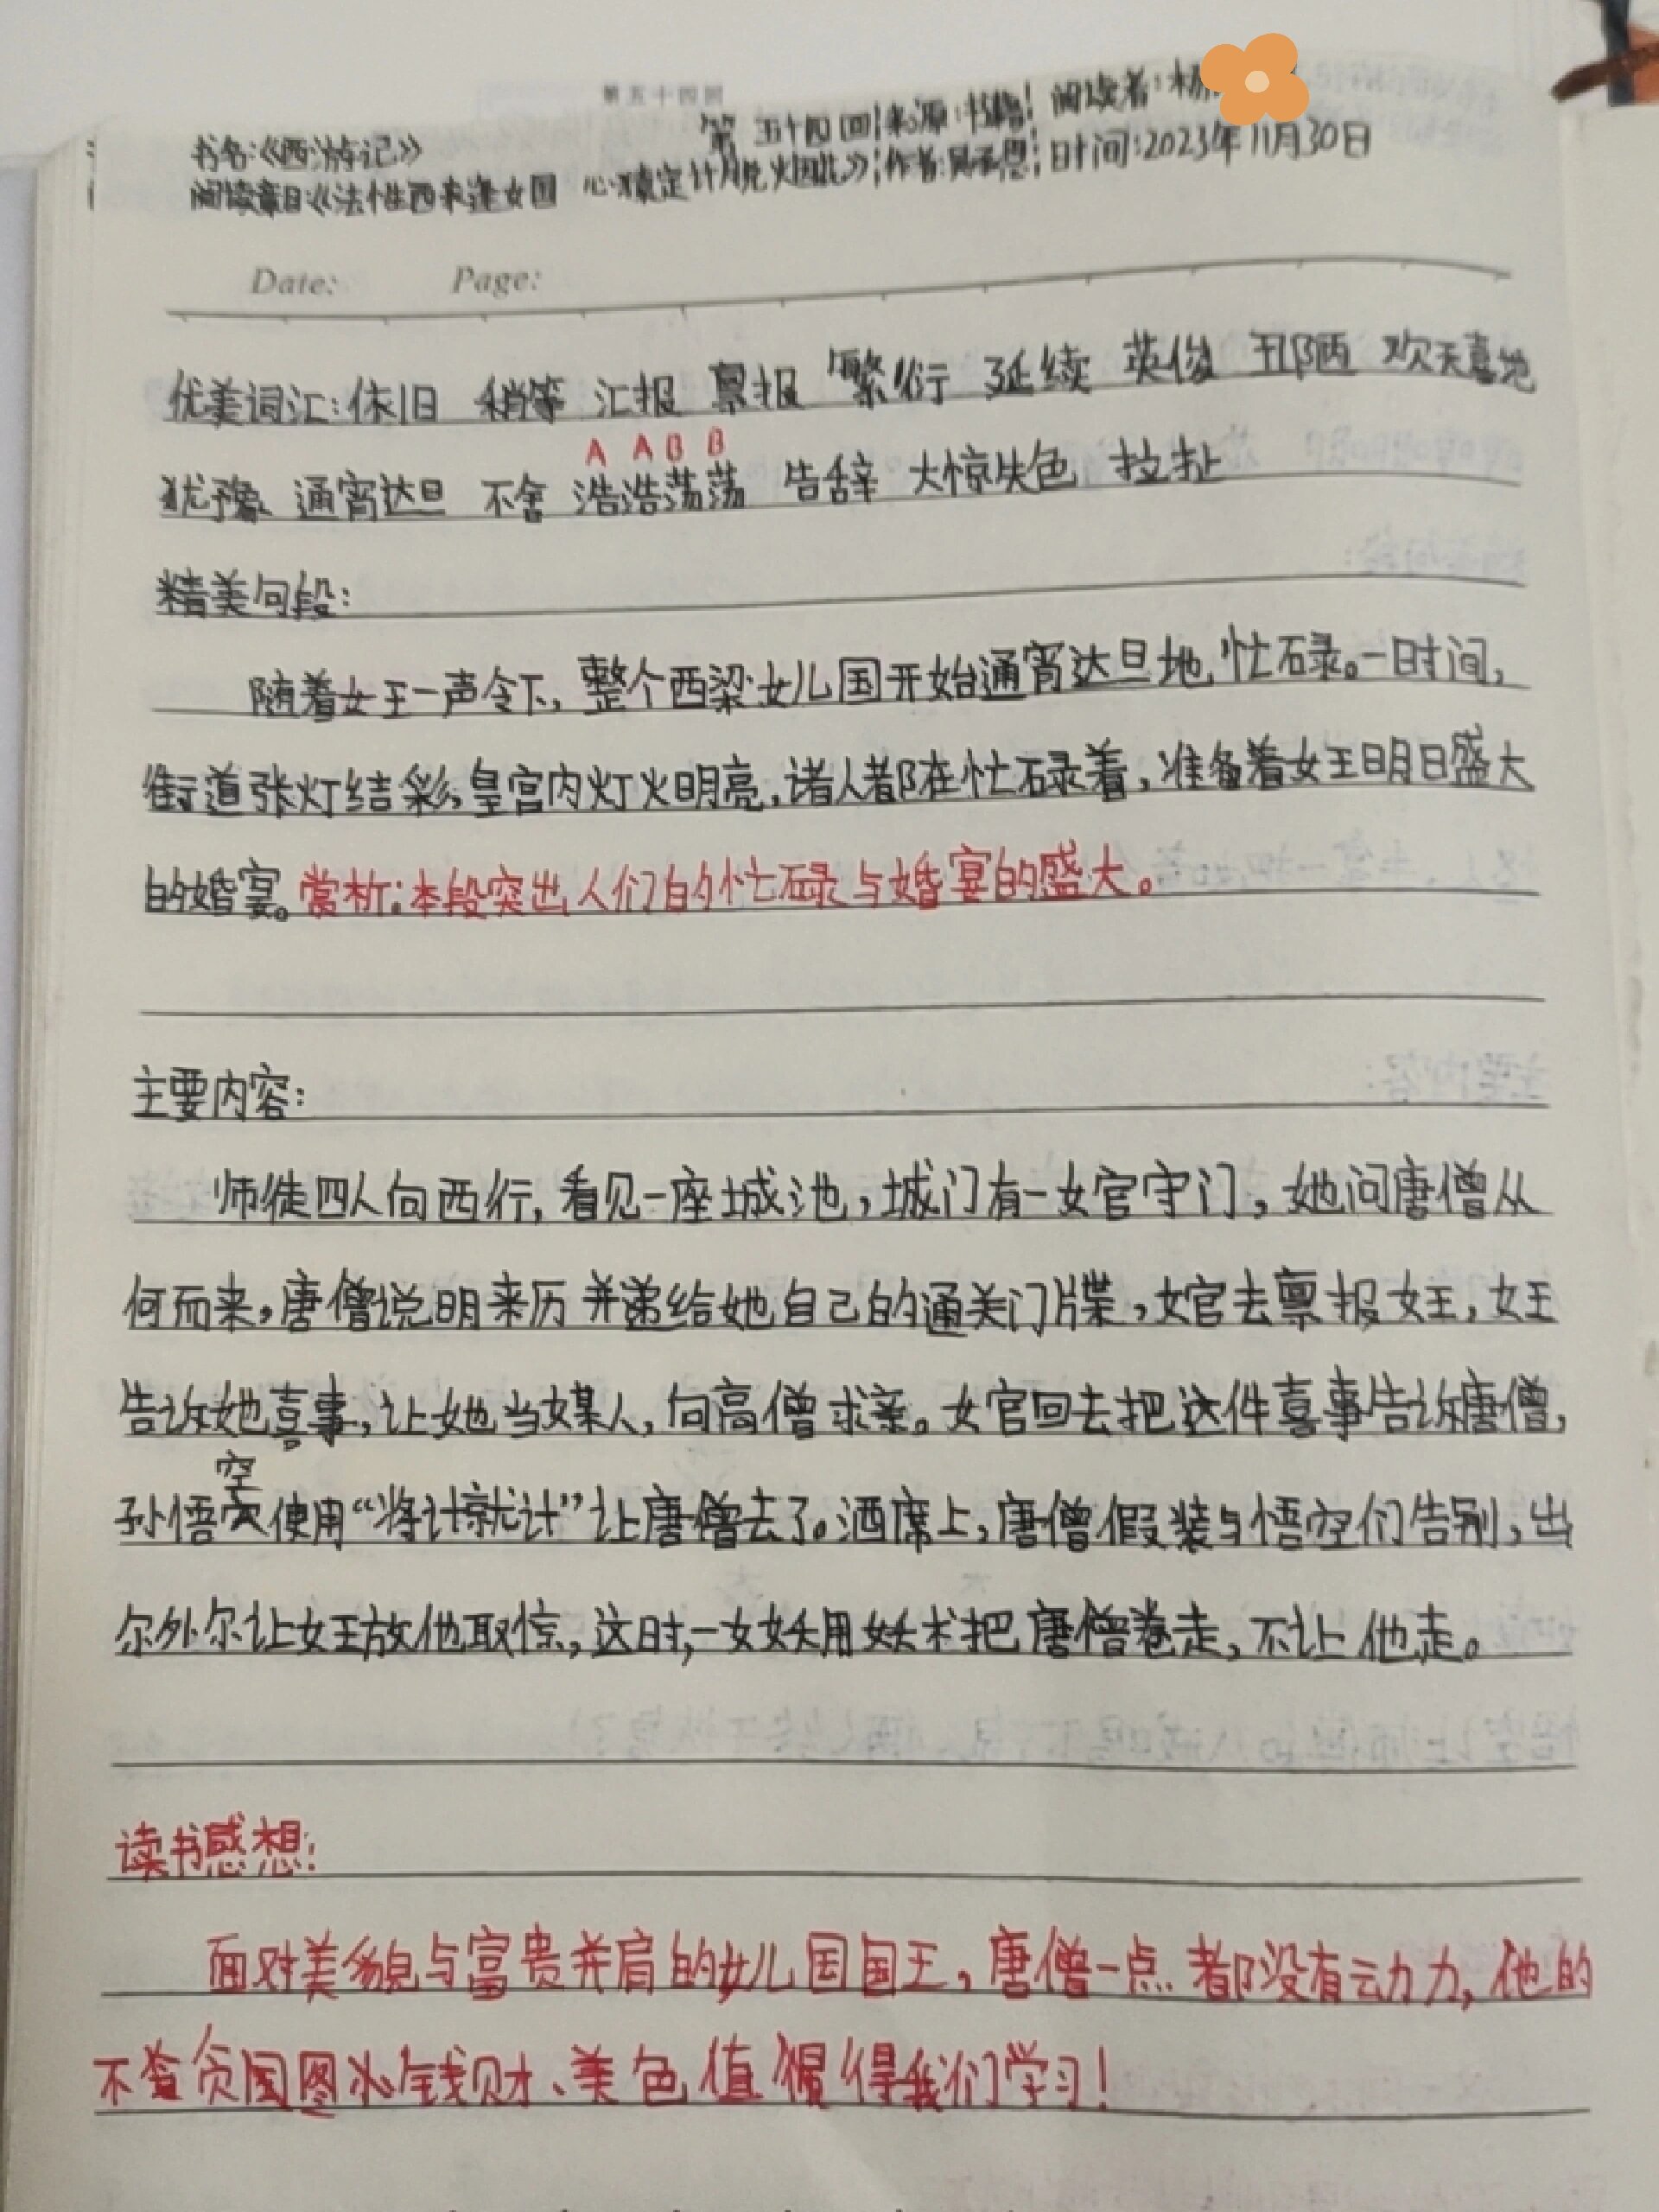 第五十四回
书名:《西游记》 第五十四回 来源:书籍 阅读者:杨
阅读章目:《法性西来逢女国 心猿定计脱烟花》 作者:吴承恩 时间:2023年11月30日
Date: Page:
优美词汇:依旧 稍等 汇报 禀报 繁衍 延续 英俊 丑陋 欢天喜地
A A B B
犹豫 通宵达旦 不舍 浩浩荡荡 告辞 大惊失色 拉扯
精美句段:
随着女王一声令下,整个西梁女儿国开始通宵达旦地忙碌。一时间,
街道张灯结彩,皇宫内灯火明亮,诸人都在忙碌着,准备着女王明日盛大
的婚宴。赏析:本段突出人们的忙碌与婚宴的盛大。
主要内容:
师徒四人向西行,看见一座城池,城门有一女官守门,她问唐僧从
何而来,唐僧说明来历并递给她自己的通关门牒,女官去禀报女王,女王
告诉她喜事,让她当媒人,向高僧求亲。女官回去把这件喜事告诉唐僧,
孙悟空使用“将计就计”让唐僧去了。酒席上,唐僧假装与悟空们告别,出
尔外尔让女王放他取惊,这时,一女妖用妖术把唐僧卷走,不让他走。
读书感想:
面对美貌与富贵并肩的女儿国国王,唐僧一点都没有动力,他的
不贪图钱财、美色值得我们学习!